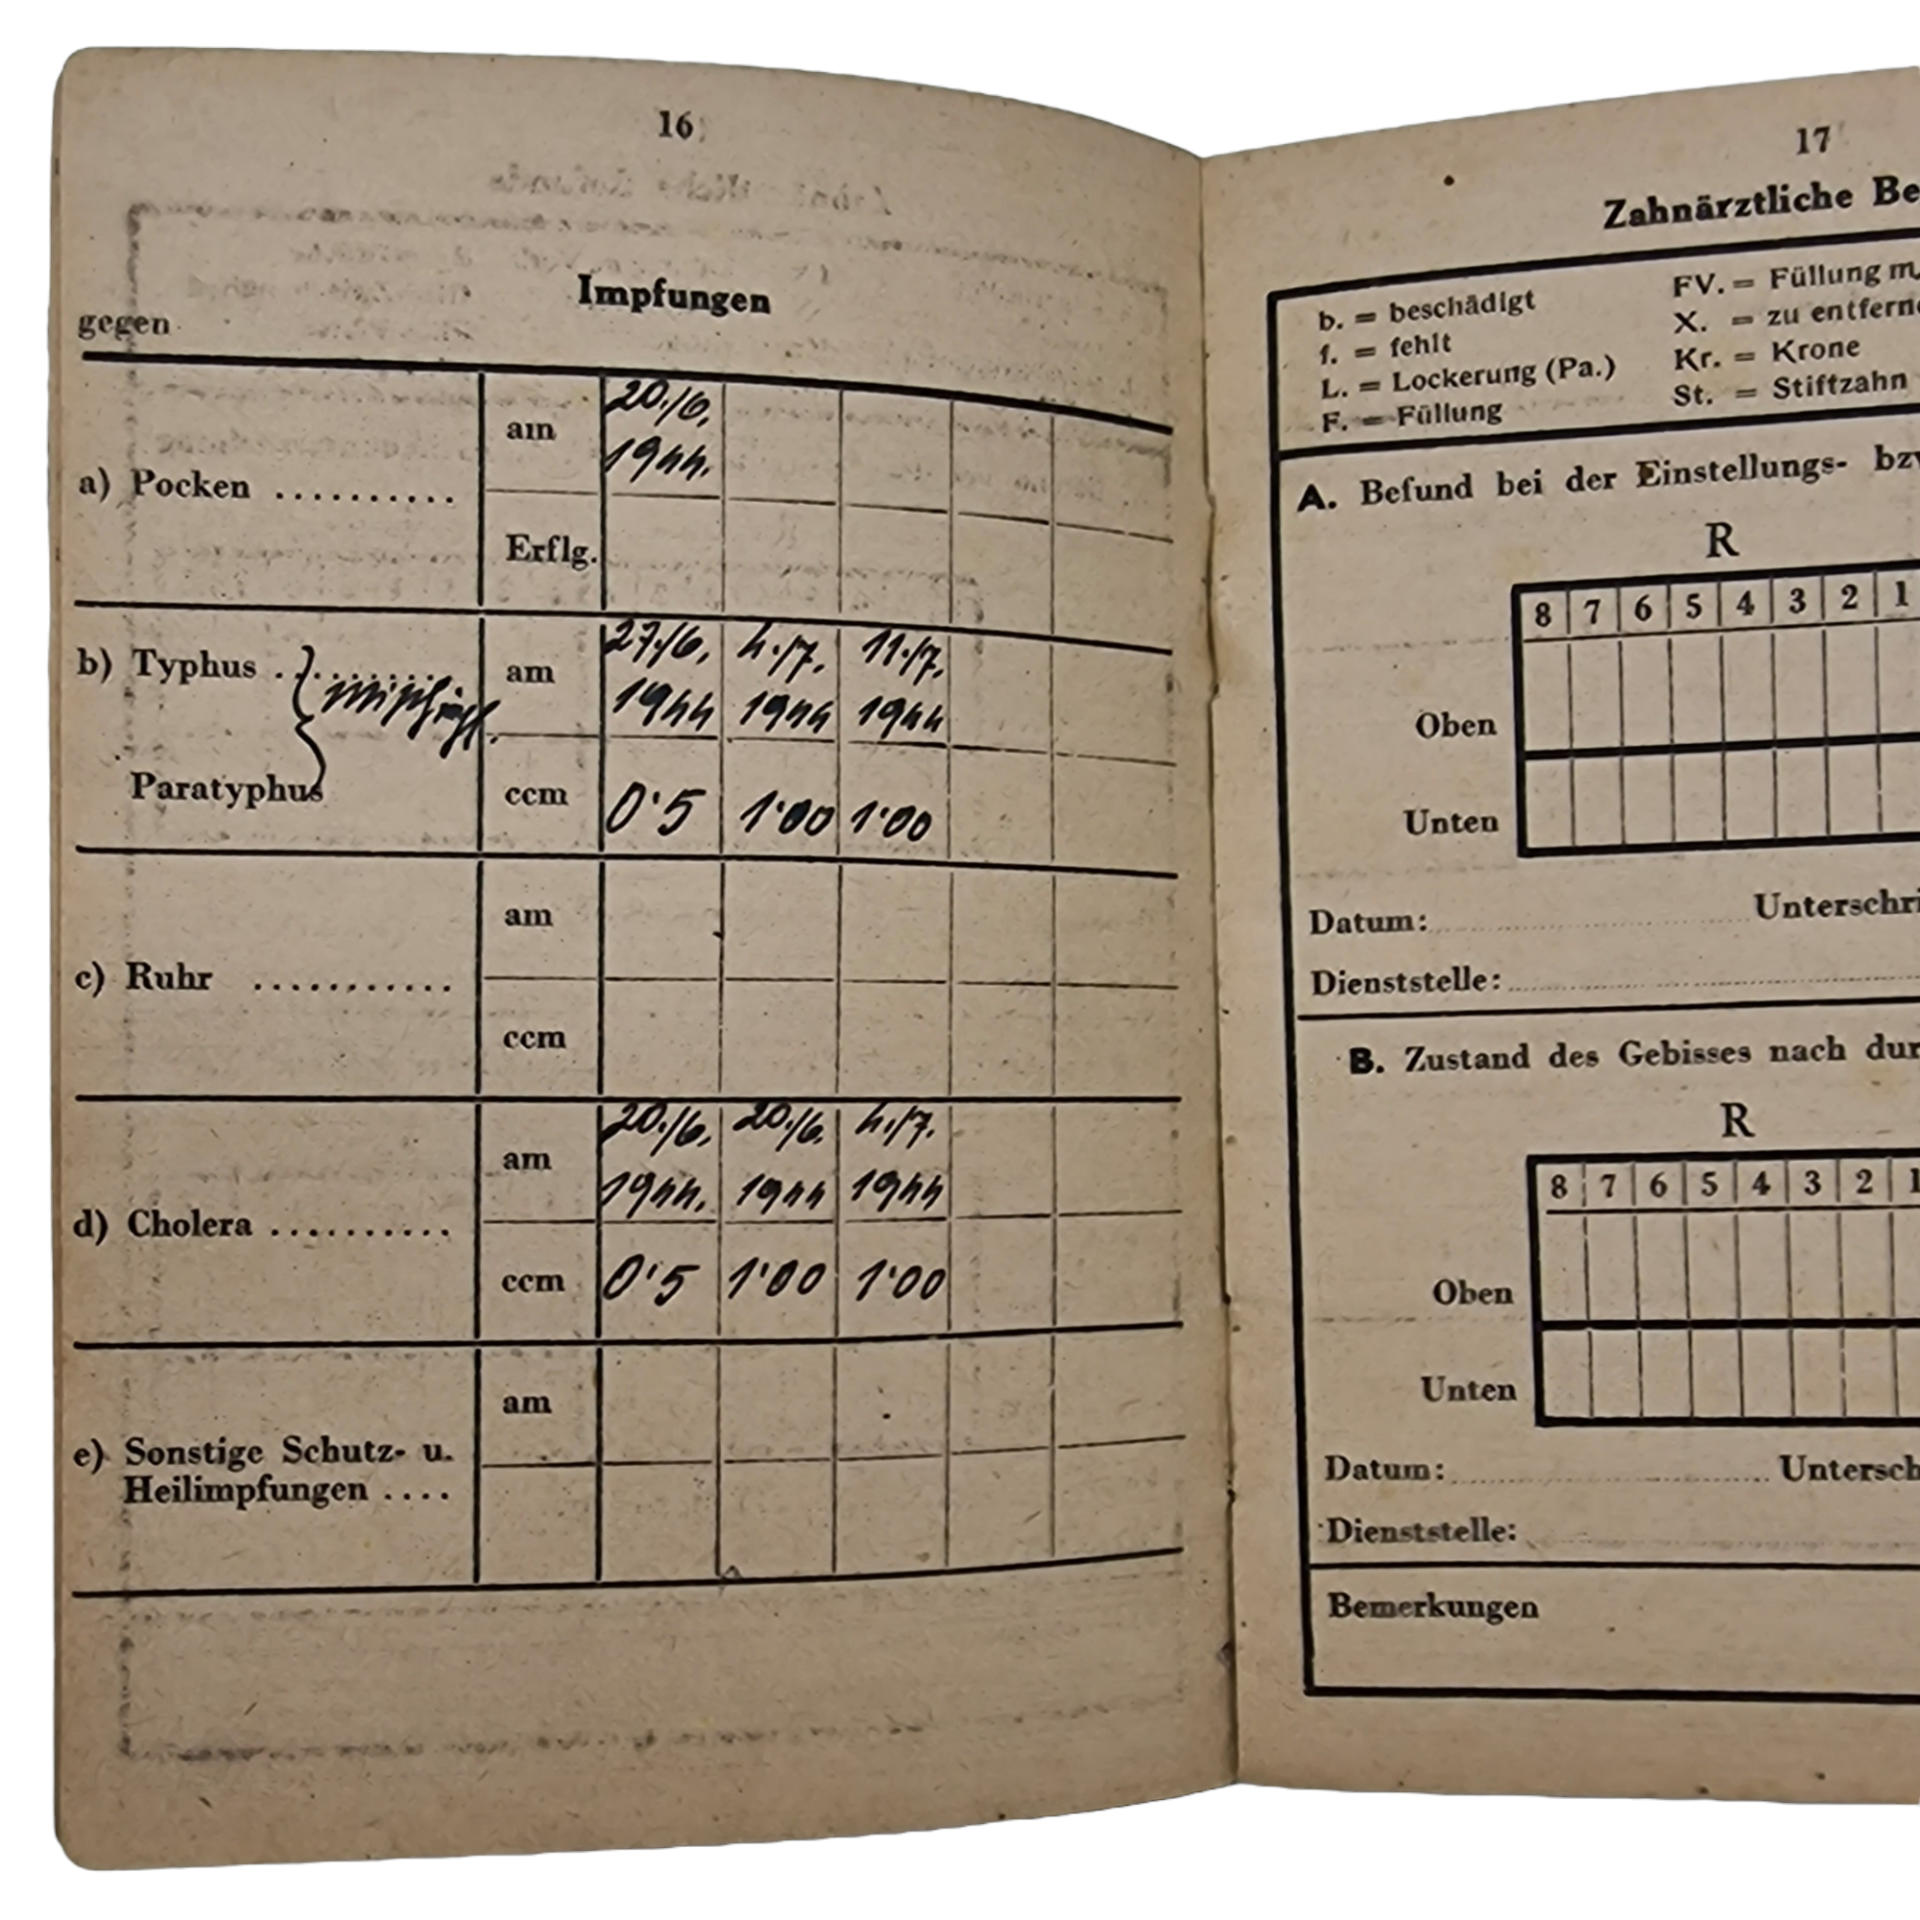 16
Impfungen
gegen
a) Pocken ..........
am
20./6.
1944.
Erflg.
b) Typhus ..........
Paratyphus
am
27./6. 4./7. 11./7.
1944 1944 1944
ccm
0'5 1'00 1'00
c) Ruhr ...........
am
ccm
d) Cholera ..........
am
20./6. 20./6. 4./7.
1944. 1944 1944
ccm
0'5 1'00 1'00
e) Sonstige Schutz- u.
Heilimpfungen ....
am
17
Zahnärztliche Be
b. = beschädigt
f. = fehlt
L. = Lockerung (Pa.)
F. = Füllung
FV. = Füllung m.
X. = zu entferne
Kr. = Krone
St. = Stiftzahn
A. Befund bei der Einstellungs- bzw
R
8 7 6 5 4 3 2 1
Oben
Unten
Datum: Unterschri
Dienststelle:
B. Zustand des Gebisses nach dur
R
8 7 6 5 4 3 2 1
Oben
Unten
Datum: Untersch
Dienststelle:
Bemerkungen